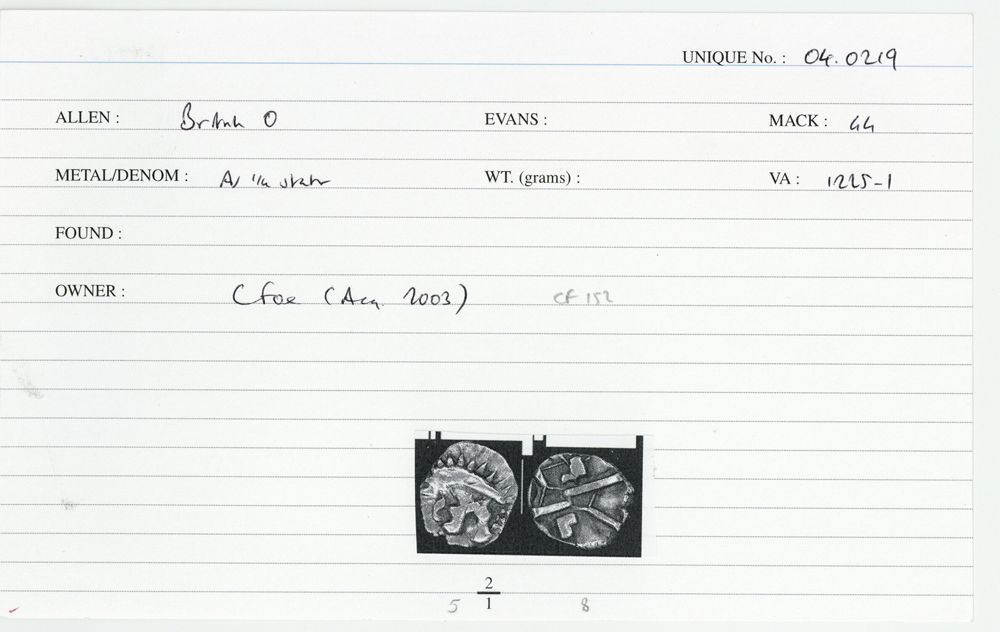 UNIQUE No. : 04.0219
ALLEN : British O EVANS : MACK : 44
METAL/DENOM : A/ 1/4 stater WT. (grams) : VA : 1225-1
FOUND :
OWNER : C foe (Acq. 2003) CF 152
2
5 1 8